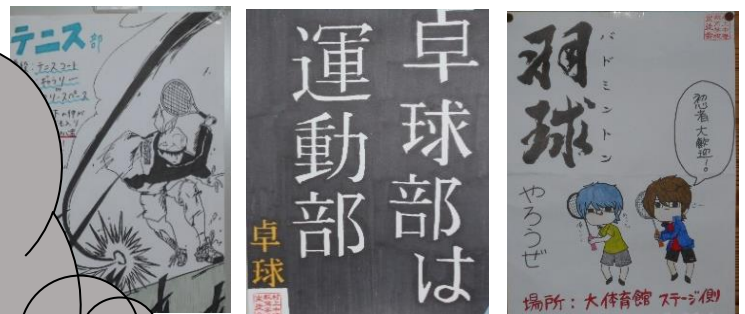 テニス部
テニスコート
卓球部は
運動部
卓球
羽球
バドミントン
やろうぜ
初心者大歓迎!。
場所:大体育館 ステージ側